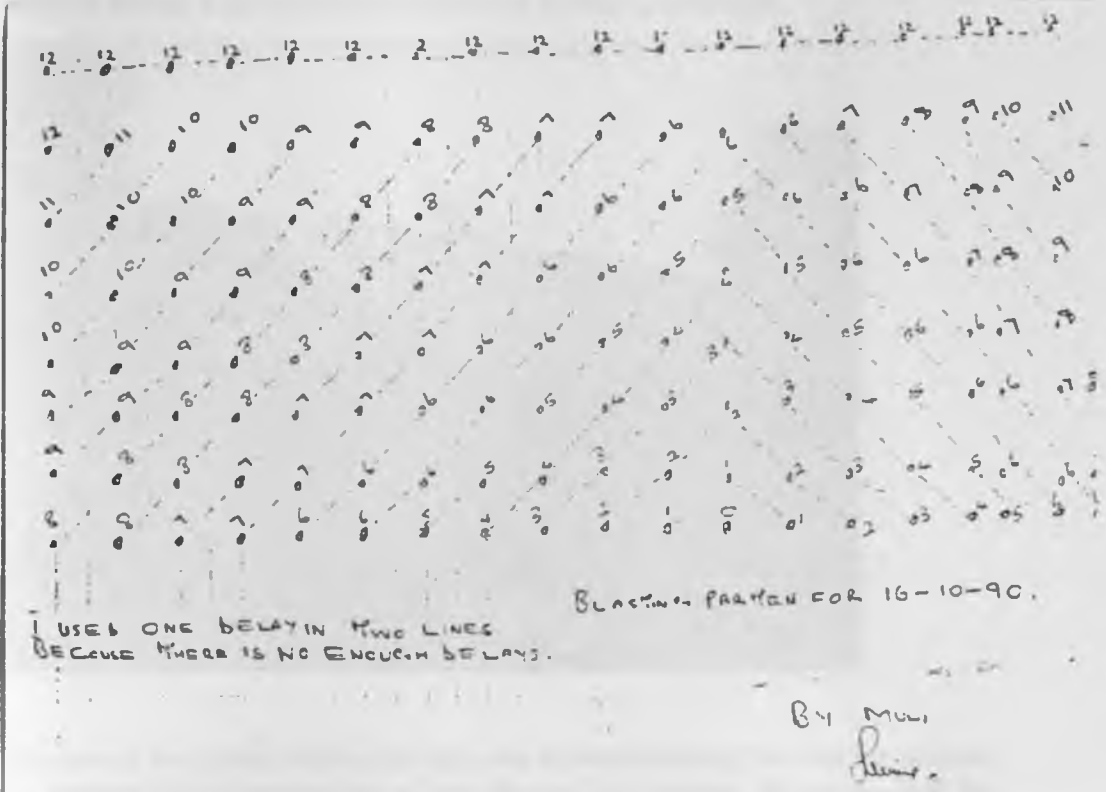 12 12 12 12 12 12 2 12 12 12 1 12 12 12 12 12 12 12
12 11 10 10 9 9 8 8 7 7 6 6 6 7 8 9 10 11
11 10 10 9 9 8 8 7 7 6 6 5 6 6 7 8 9 10
10 10 9 9 8 8 7 7 6 6 5 5 5 6 6 7 8 9
10 9 9 8 8 7 7 6 6 5 4 3 4 5 6 6 7 8
9 9 8 8 7 7 6 6 5 4 3 2 3 4 5 6 6 7
9 8 8 7 7 6 6 5 4 3 2 1 2 3 4 5 6 6
8 8 7 7 6 6 5 4 3 2 1 0 1 2 3 4 5
BLASTING PARTTEN FOR 16-10-90.
I USED ONE DELAY IN TWO LINES
BECAUSE THERE IS NO ENOUGH DELAYS.
BY MULI